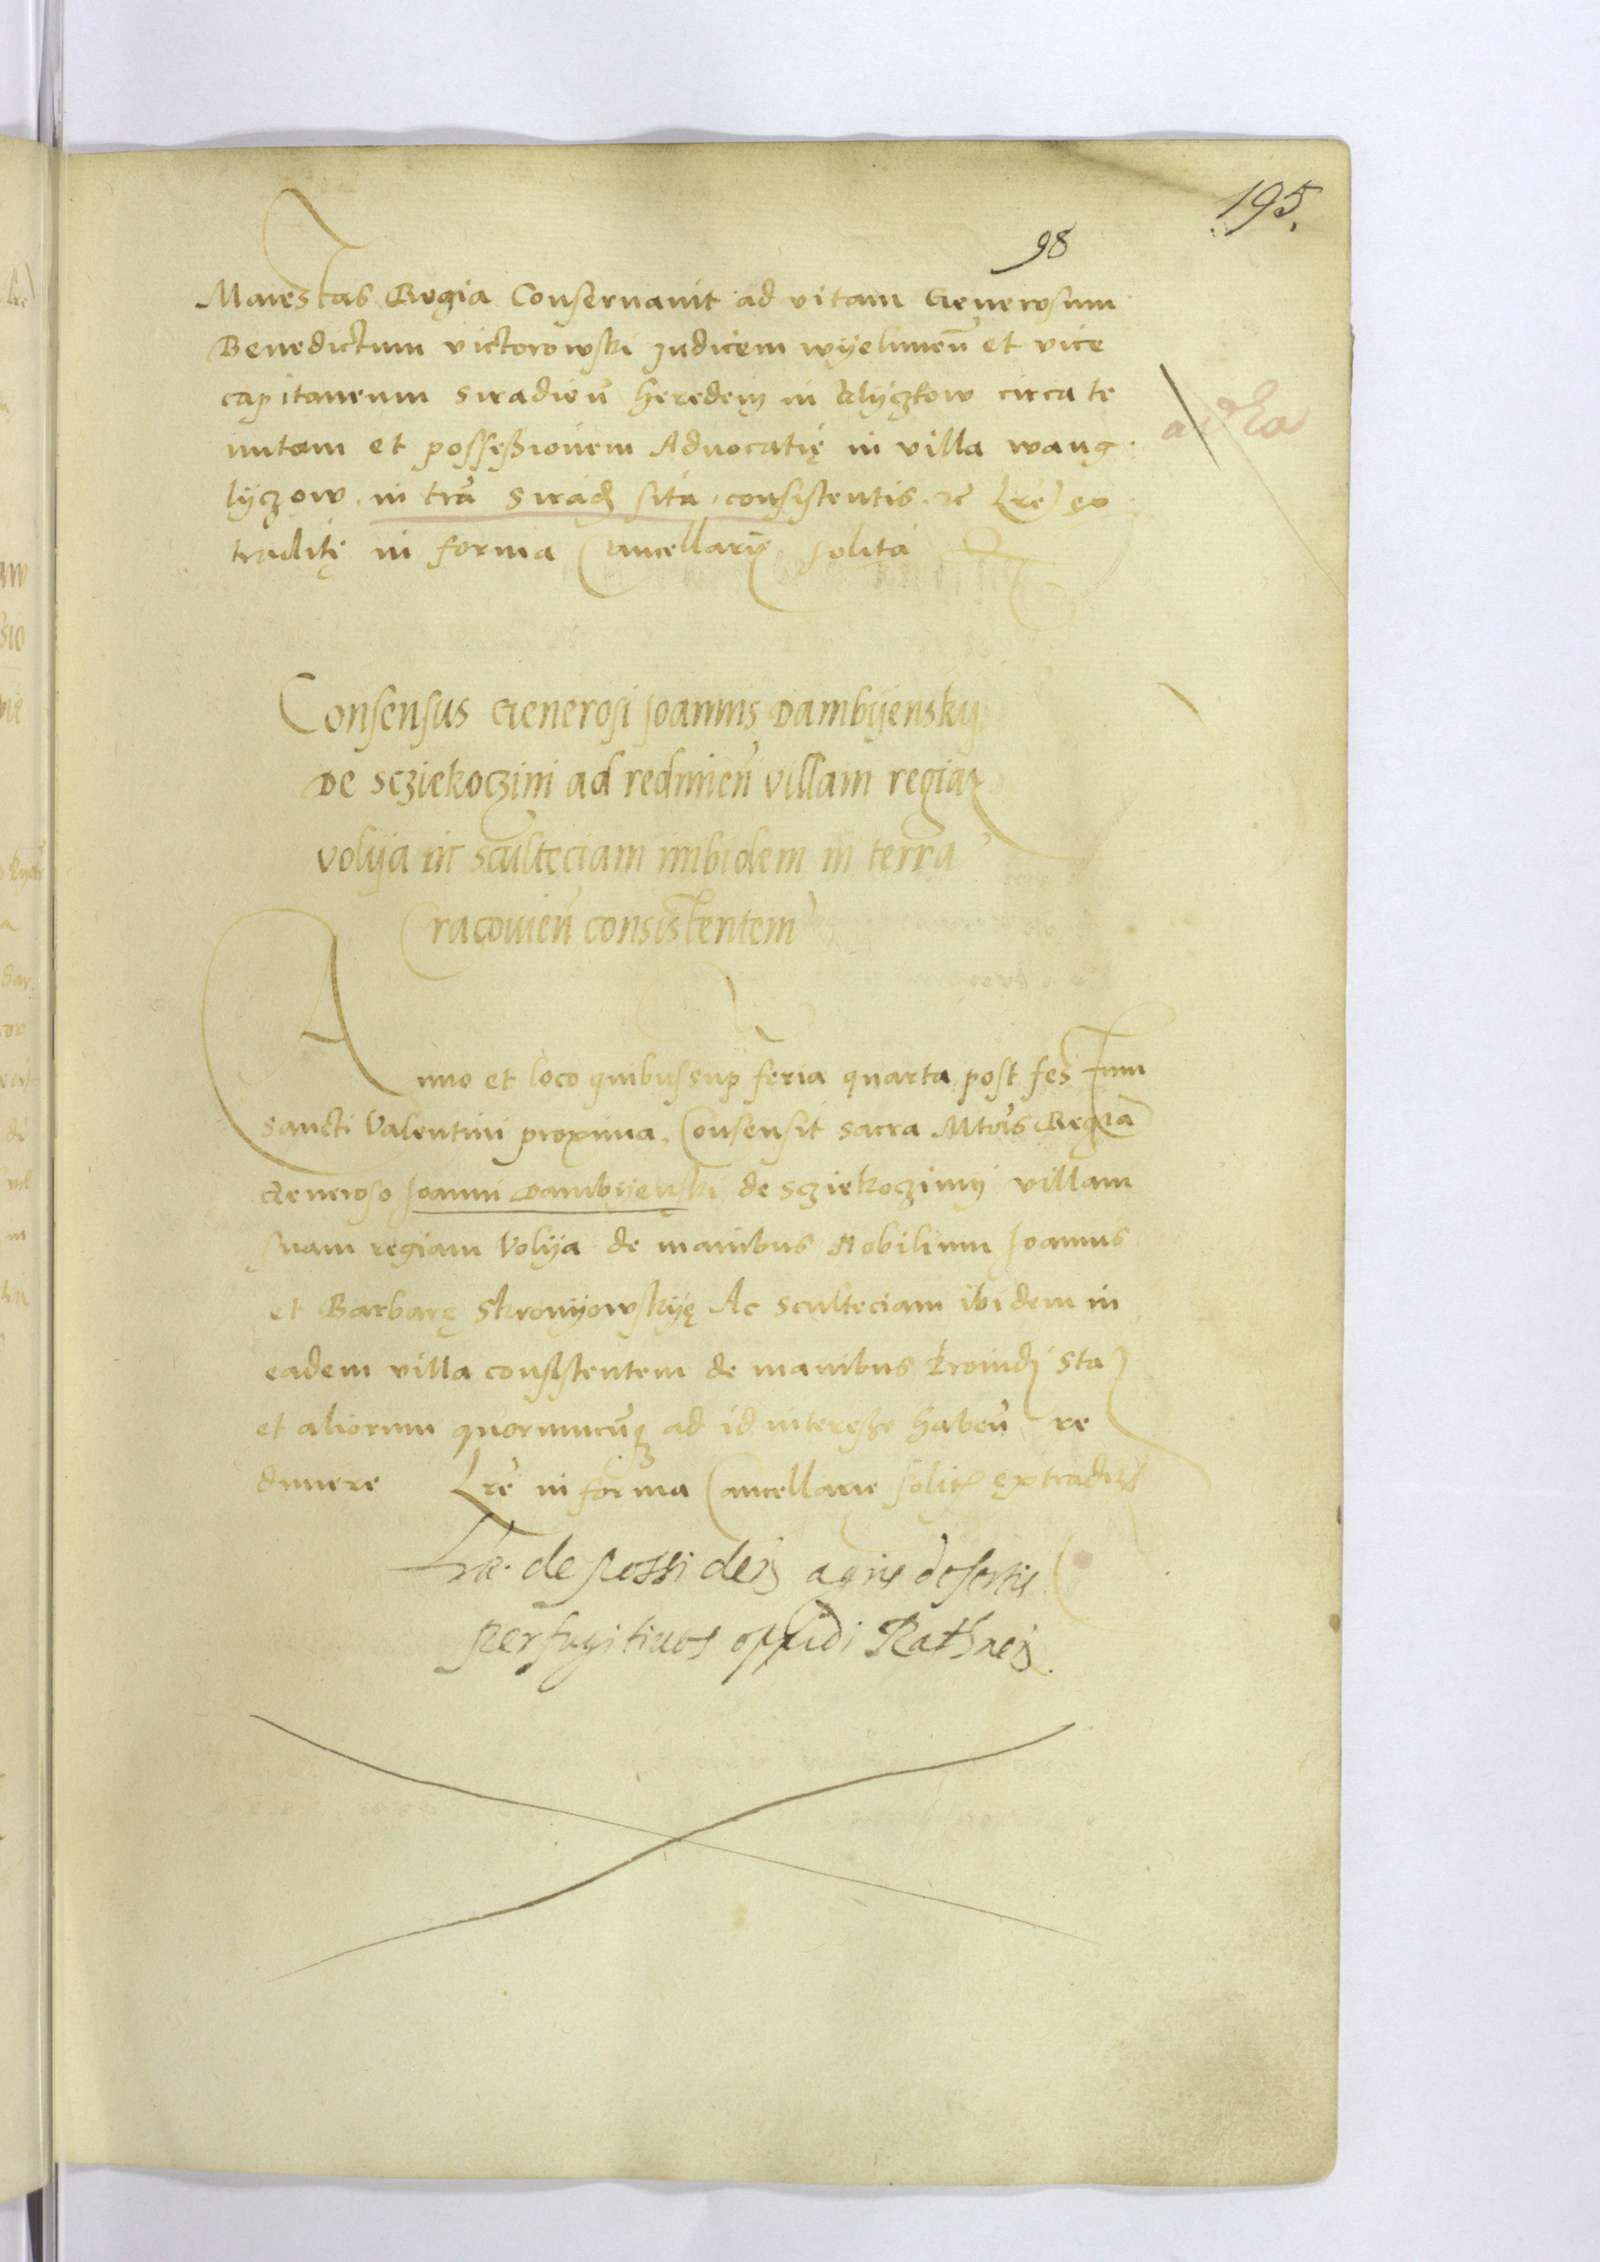 195.
98
Maiestas Regia Conservavit ad vitam Generosum
Benedictum victorowski Judicem wyelunen̄ et vice
capitaneum siradien̄ heredem in Klyczkow circa te
nutam et possessionem Advocatię in villa wang
lyczow in trā Sirad sita consistentis etc Lrē ex
traditę in forma Cancellarię solita
Consensus Generosi Joannis Dambyensky
de Scziekoczini ad redimen̄ villam regiam
volya et scultetiam inibidem in terra
Cracovien̄ consistentem
Anno et loco quibus sup feria quarta post festum
sancti Valentini proxima. Consensit sacra Mtas Regia
Generoso Joanni Dambyenski de Scziekoczimy villam
suam regiam Volya de manibus Nobilium Joannis
et Barbarę Skronyowskyę Ac sculteciam ibidem in
eadem villa consistentem de manibus
et aliorum quorumcunq ad id interesse haben̄ re
dimere Lrē in forma Cancellarie solita extraditę
Lrae de possiden agris desertis
per fugitivos oppidi Rathnen.